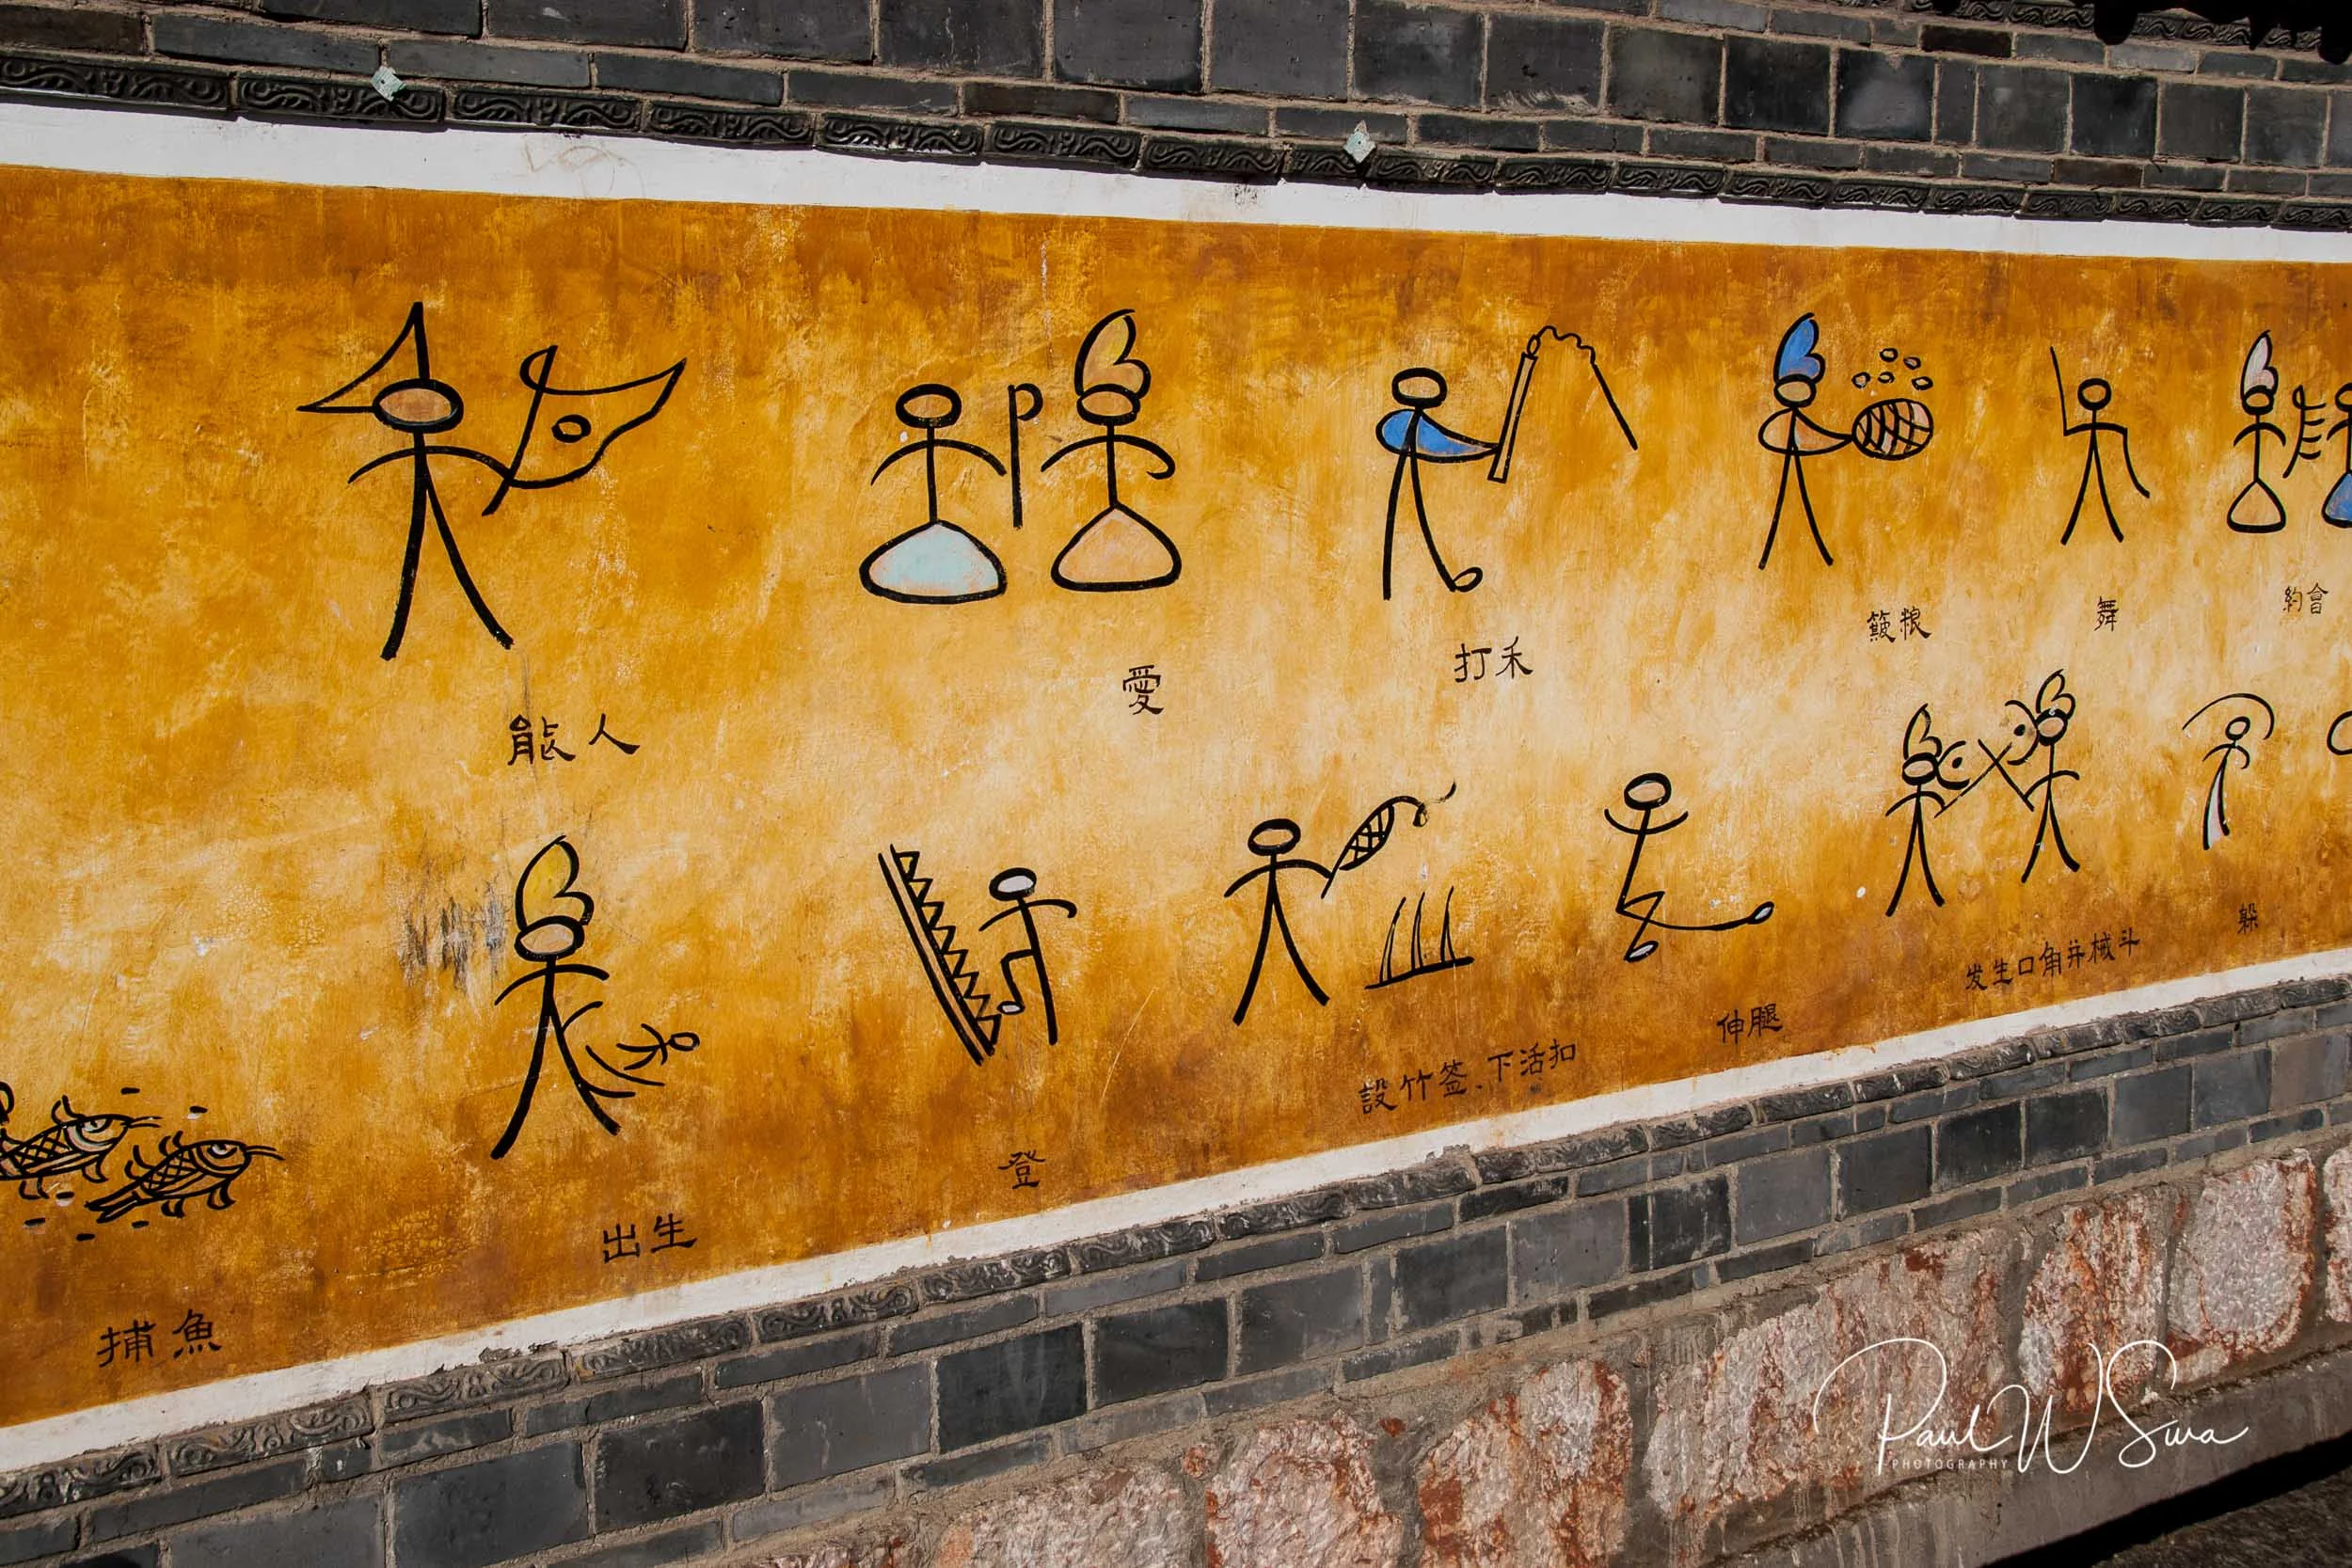 能人
愛
打禾
簸粮
舞
約會
捕魚
出生
登
設竹签、下活扣
伸腿
发生口角并械斗
躲
Paul W Swa
PHOTOGRAPHY